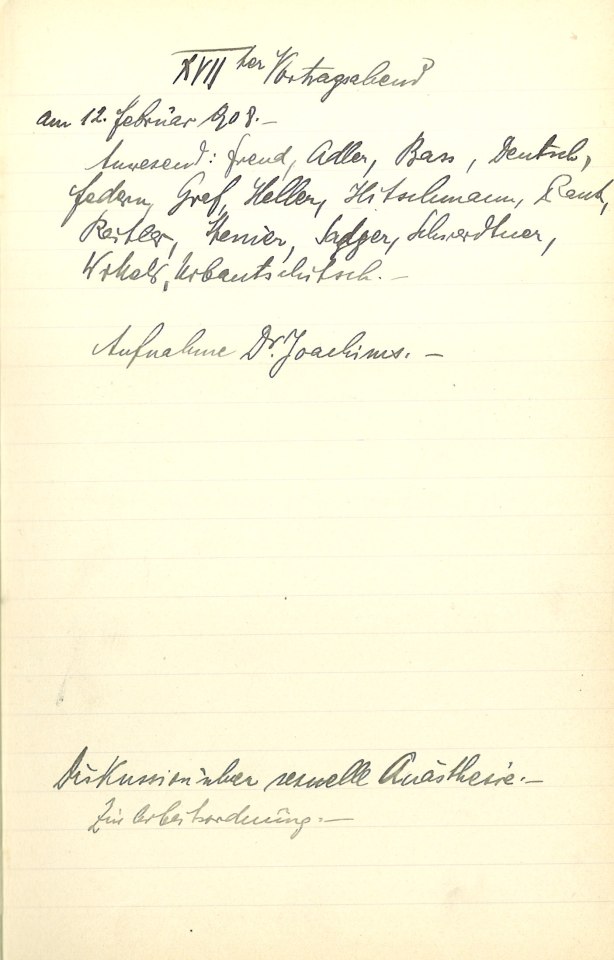 XVIIter Vortragsabend
am 12. Februar 908.-
Anwesend: Freud, Adler, Bass, Deutsch,
Federn, Graf, Heller, Hitschmann, Rank,
Reitler, Steiner, Sadger, Schwerdtner,
Wittels, Urbantschitsch.-
Aufnahme Dr. Joachims.-
Diskussion über sexuelle Anästhesie.-
Zur Arbeitsordnung.-